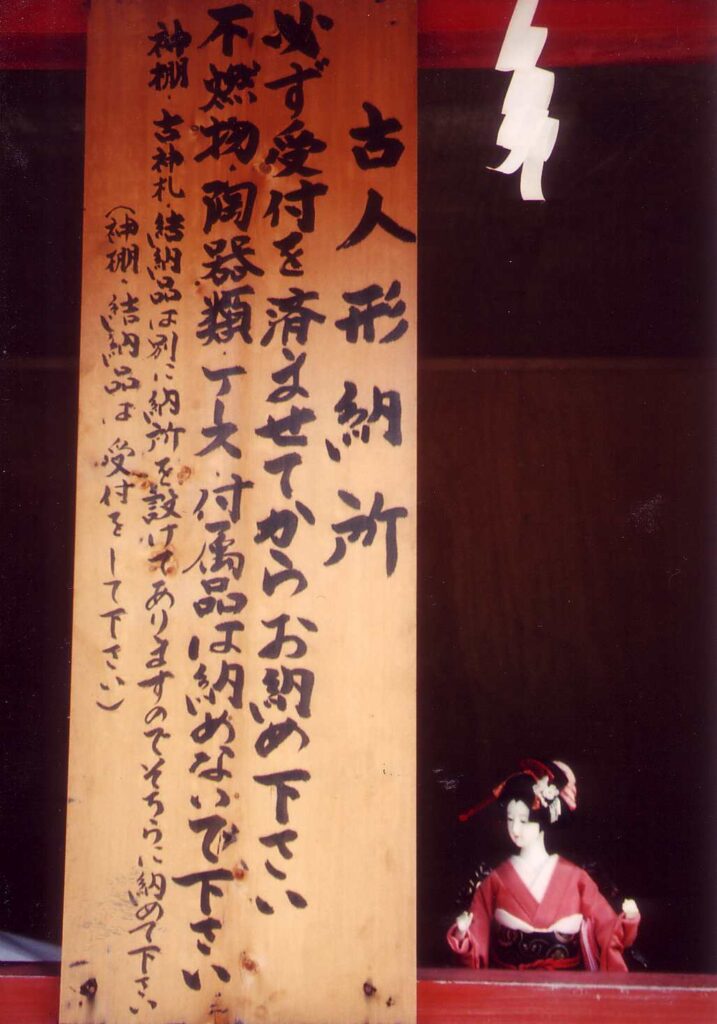 古人形納所
必ず受付を済ませてからお納め下さい
不燃物・陶器類・ケース・付属品は納めないで下さい
神棚・古神札・結納品は別に納所を設けてありますのでそちらに納めて下さい
(神棚・結納品は受付をして下さい)